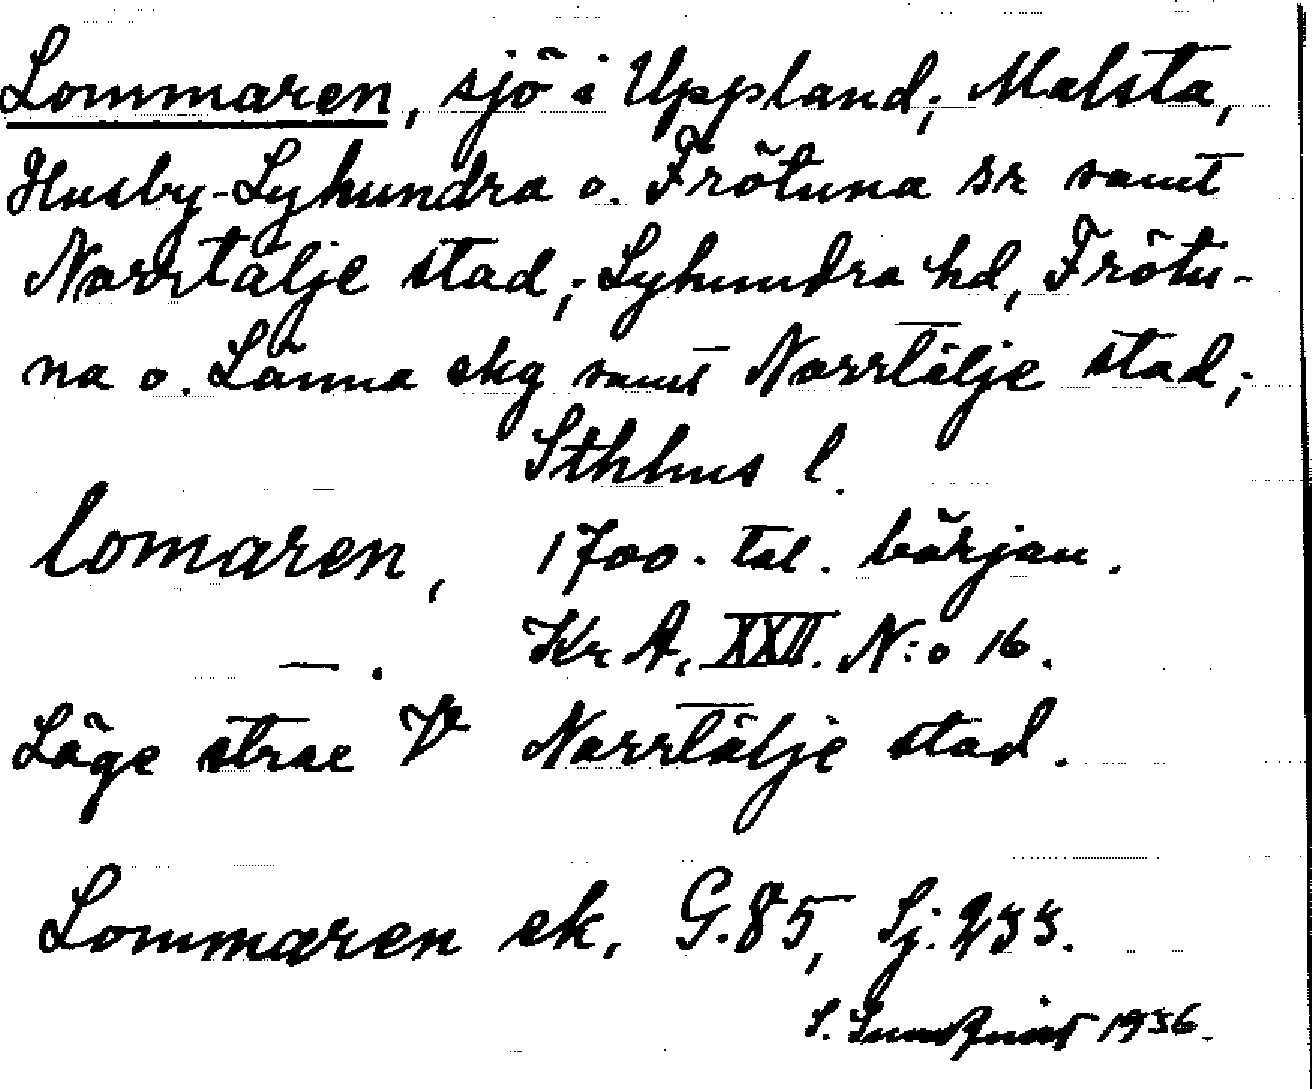 Lommaren, sjö i Uppland; Malsta,
Husby-Lyhundra o. Frötuna sr samt
Norrtälje stad; Lyhundra hd, Frötu-
na o. Länna skg samt Norrtälje stad;
Sthlms l.
lomaren, 1700-tal. början.
—. KrA, XXII. N:o 16.
Läge strax V Norrtälje stad.
Lommaren ek. G.85, Sj:233.
S. Sundquist 1936.